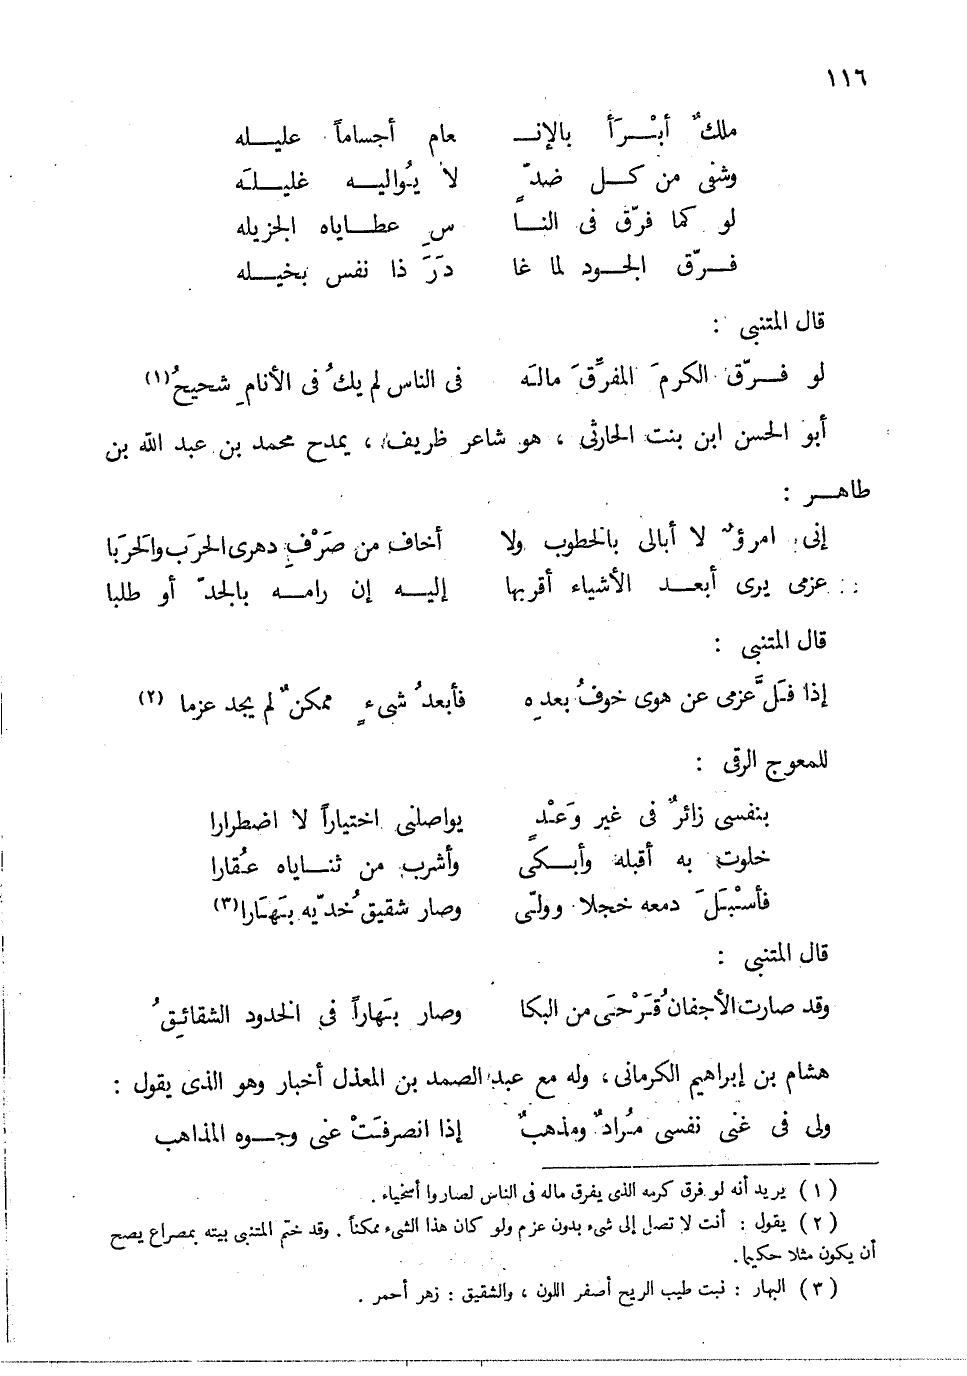 ١١٦
ملكٌ أبْرَأ بالإنـ عام أجساماً عليله
وشفى من كل ضدٍّ لا يُواليه غليلَه
لو كما فرّق فى النا سِ عطاياه الجزيله
فرّق الجود لما غا دَرَ ذا نفس بخيله
قال المتنبى :
لو فرّق الكرمَ المفرِّقَ مالَه فى الناس لم يك فى الأنامِ شحيحُ (١)
أبو الحسن ابن بنت الحارثى ، هو شاعر ظريف ، يمدح محمد بن عبد الله بن
طاهر :
إنى امرؤٌ لا أبالى بالخطوب ولا أخاف من صَرْفِ دهرى الحرَب والحَرَبا
عزمى يرى أبعد الأشياء أقربها إليه إن رامه بالجدّ أو طلبا
قال المتنبى :
إذا فَلَّ عزمى عن هوى خوفُ بعدِه فأبعدُ شىءٍ ممكنٌ لم يجد عزما (٢)
للمعوج الرقى :
بنفسى زائرٌ فى غير وَعْدٍ يواصلنى اختياراً لا اضطرارا
خلوت به أقبله وأبكى وأشرب من ثناياه عُقارا
فأسْبَلَ دمعه خجلا وولّى وصار شقيقُ خدّيه بَهَارا (٣)
قال المتنبى :
وقد صارت الأجفانُ قَرْحَى من البكا وصار بَهاراً فى الخدود الشقائِقُ
هشام بن إبراهيم الكرمانى ، وله مع عبد الصمد بن المعذل أخبار وهو الذى يقول :
ولى فى غنى نفسى مُرادٌ ومذهبٌ إذا انصرفَتْ عنى وجوه المذاهب
(١) يريد أنه لو فرق كرمه الذى يفرق ماله فى الناس لصاروا أسخياء .
(٢) يقول : أنت لا تصل إلى شىء بدون عزم ولو كان هذا الشىء ممكناً . وقد ختم المتنبى بيته بمصراع يصح
أن يكون مثلا حكيما.
(٣) البهار : نبت طيب الريح أصفر اللون ، والشقيق : زهر أحمر .